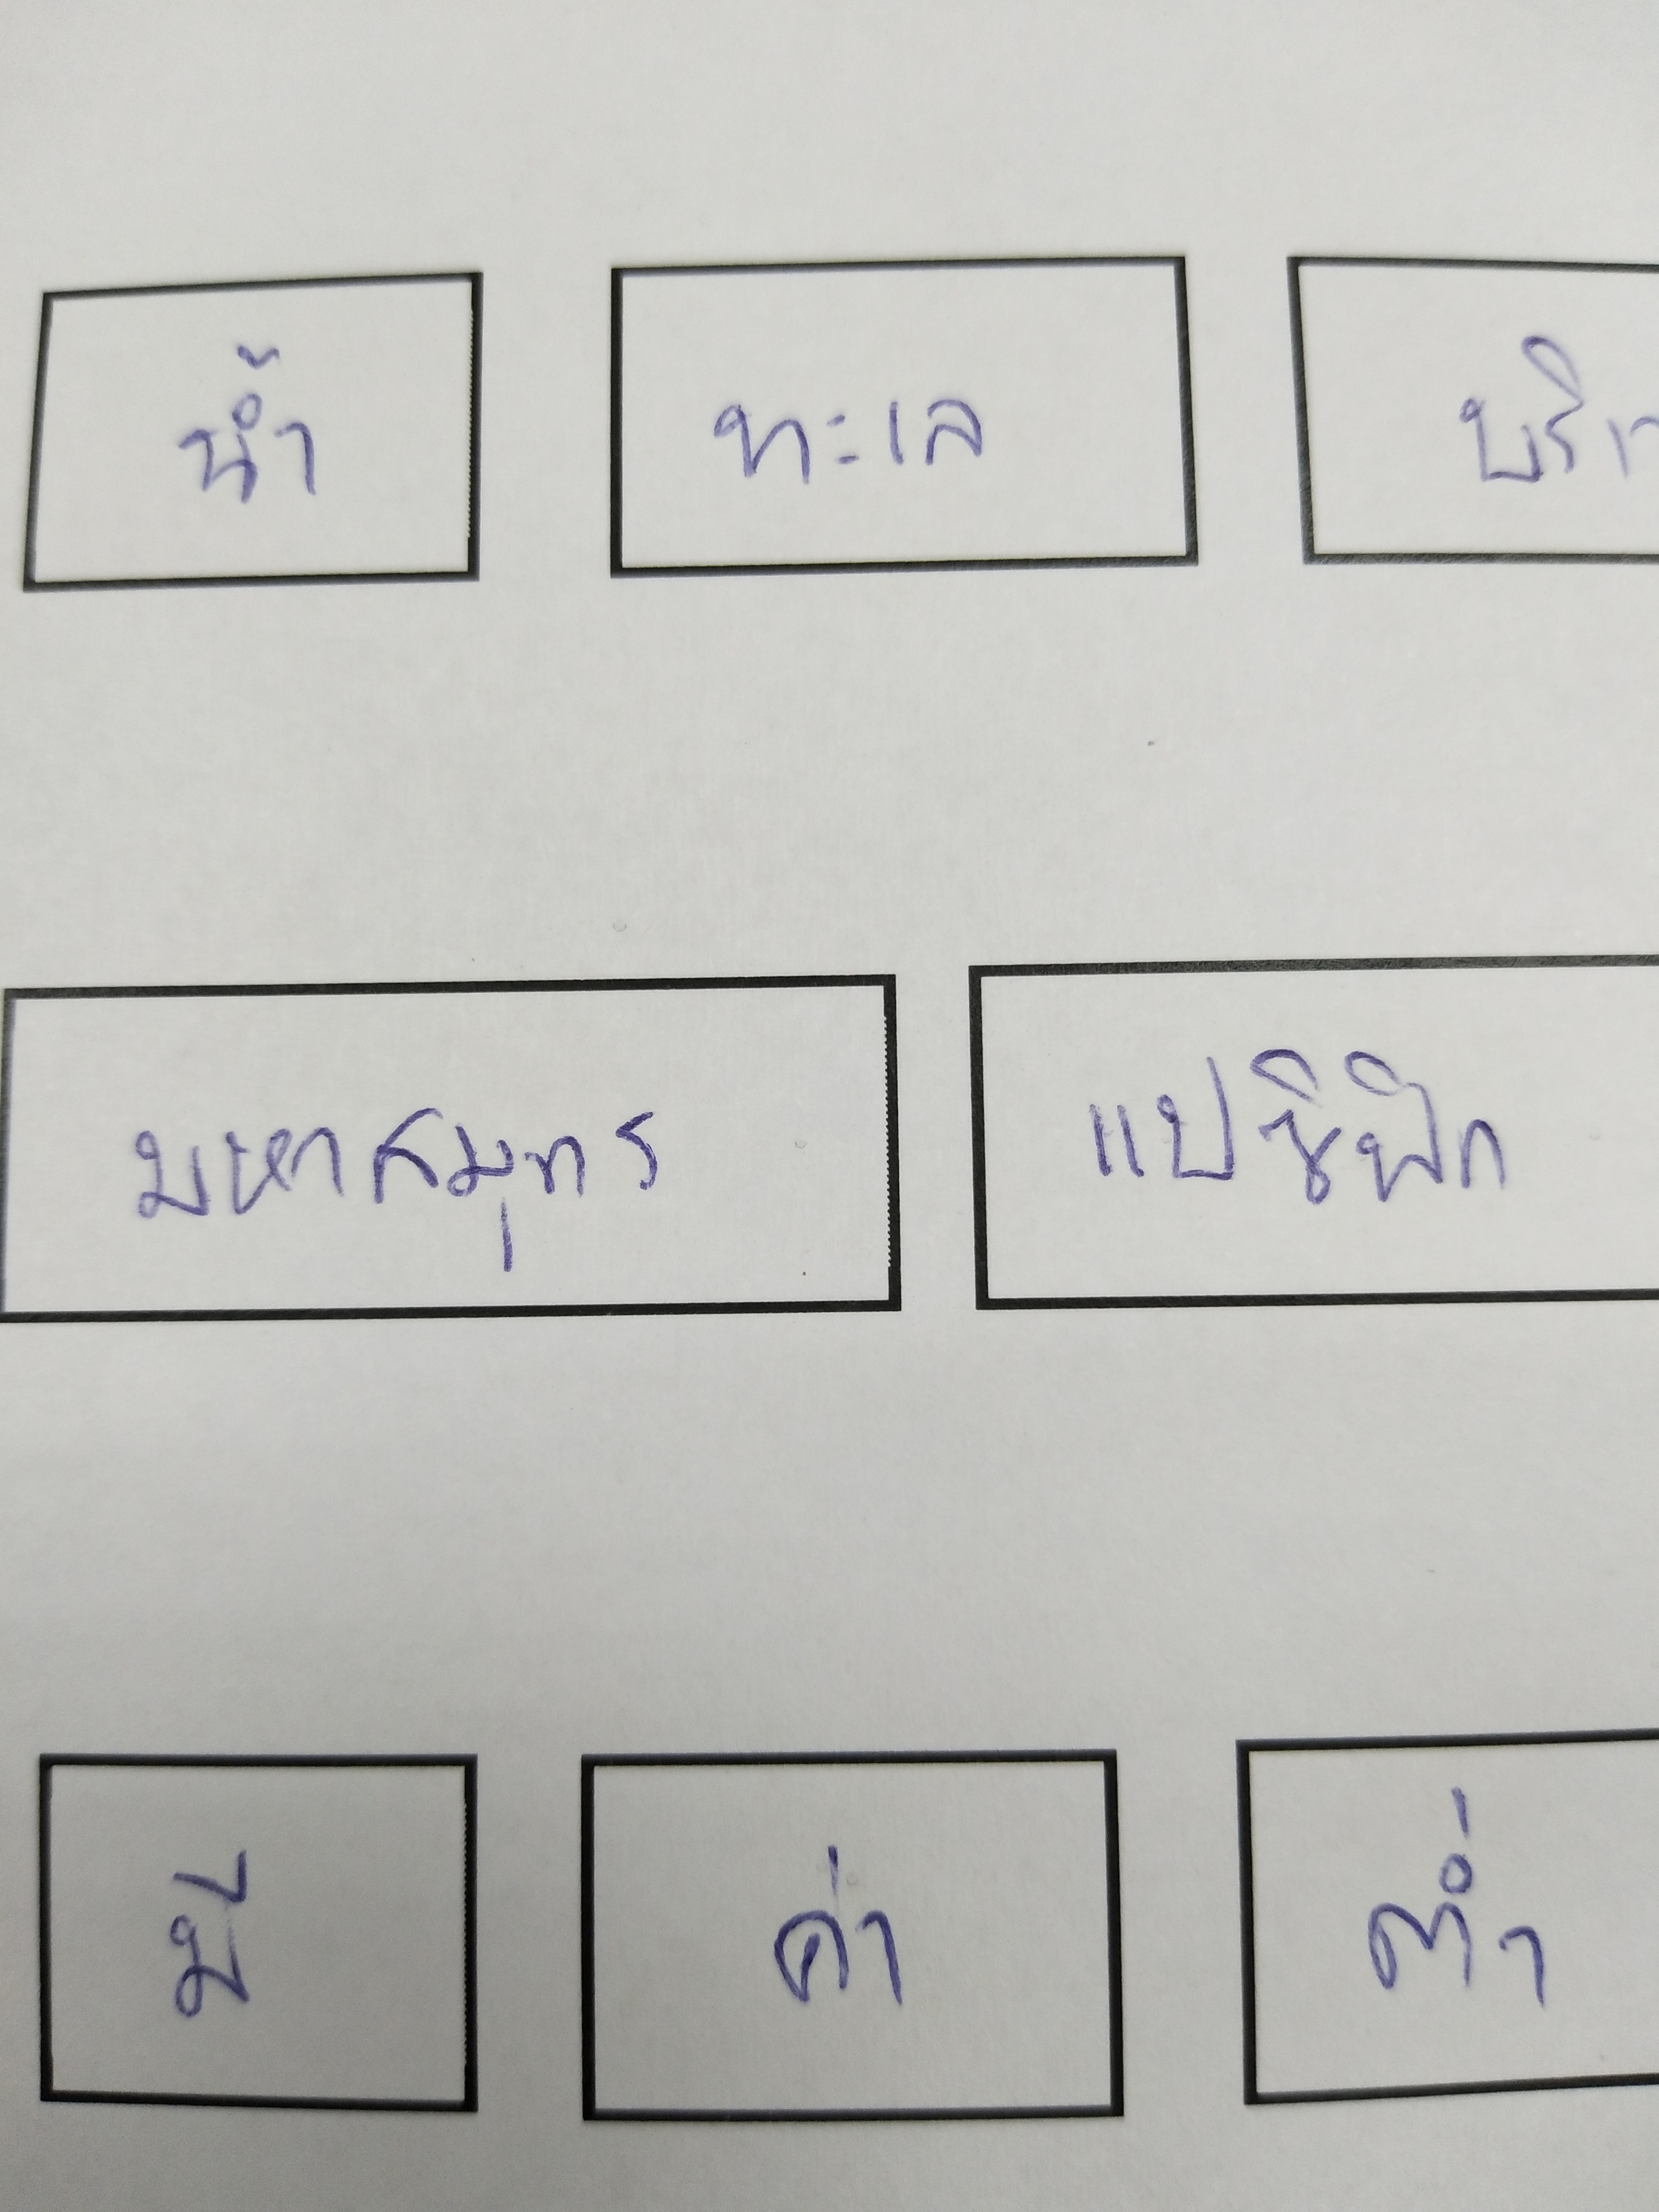 น้ำ ทะเล
มหาสมุทร แปซิฟิก
มี ค่า ต่ำ